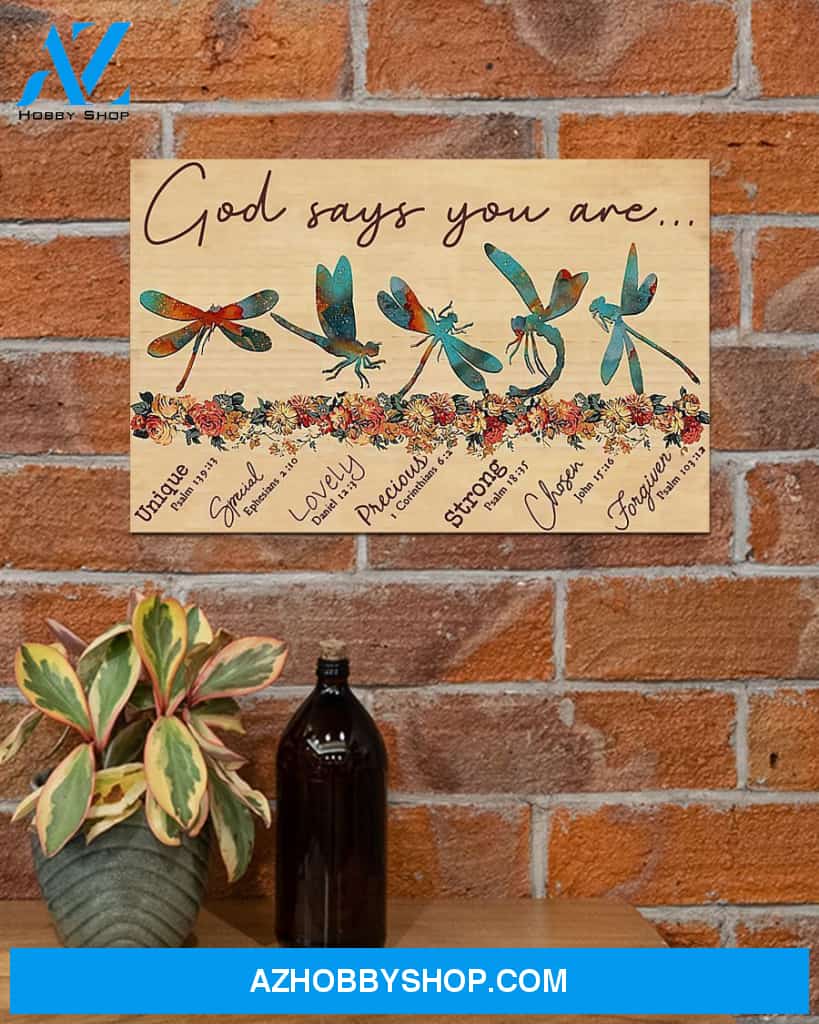 AZ
HOBBY SHOP
God says you are...
Unique
Psalm 139:13
Special
Ephesians 2:10
Lovely
Daniel 12:3
Precious
1 Corinthians 6:2
Strong
Psalm 18:35
Chosen
John 15:16
Forgiven
Psalm 103:12
AZHOBBYSHOP.COM